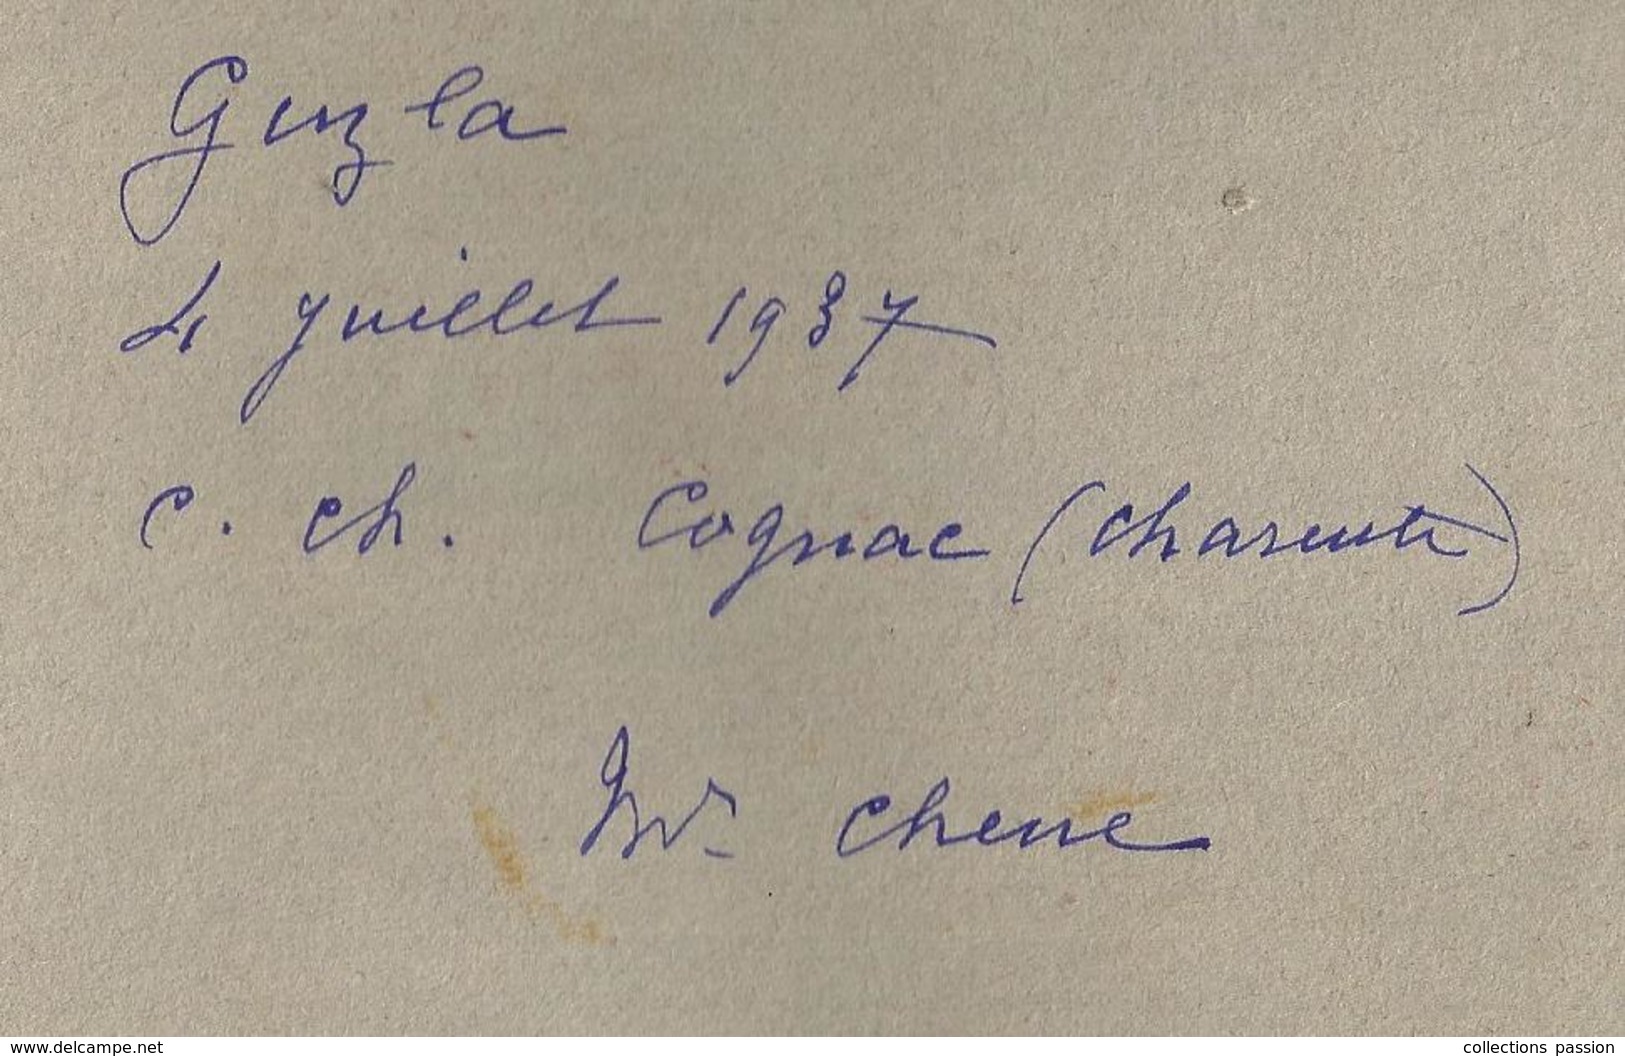 Guzla
4 juillet 1937
c. ch. Cognac (Charente)
Mr Chene
www.delcampe.net
collections passion